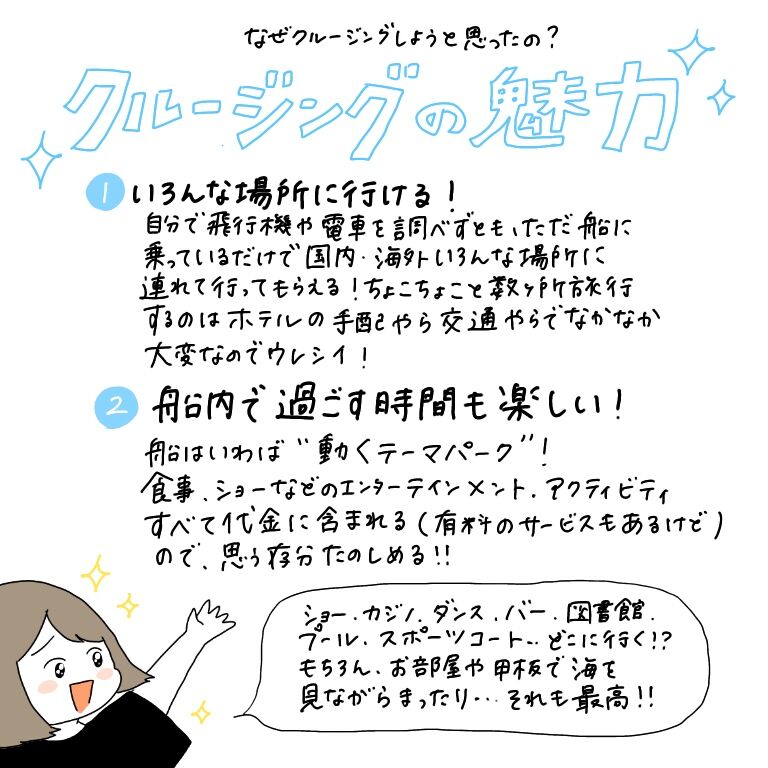 なぜクルージングしようと思ったの?
クルージングの魅力
1 いろんな場所に行ける!
自分で飛行機や電車を調べずとも、ただ船に
乗っているだけで国内・海外いろんな場所に
連れて行ってもらえる!ちょこちょこと数ヶ所旅行
するのはホテルの手配やら交通やらでなかなか
大変なのでウレシイ!
2 船内で過ごす時間も楽しい!
船はいわば“動くテーマパーク”!
食事、ショーなどのエンターテインメント、アクティビティ
すべて代金に含まれる(有料のサービスもあるけど)
ので、思う存分たのしめる!!
ショー、カジノ、ダンス、バー、図書館、
プール、スポーツコート…どこに行く!?
もちろん、お部屋や甲板で海を
見ながらまったり…それも最高!!